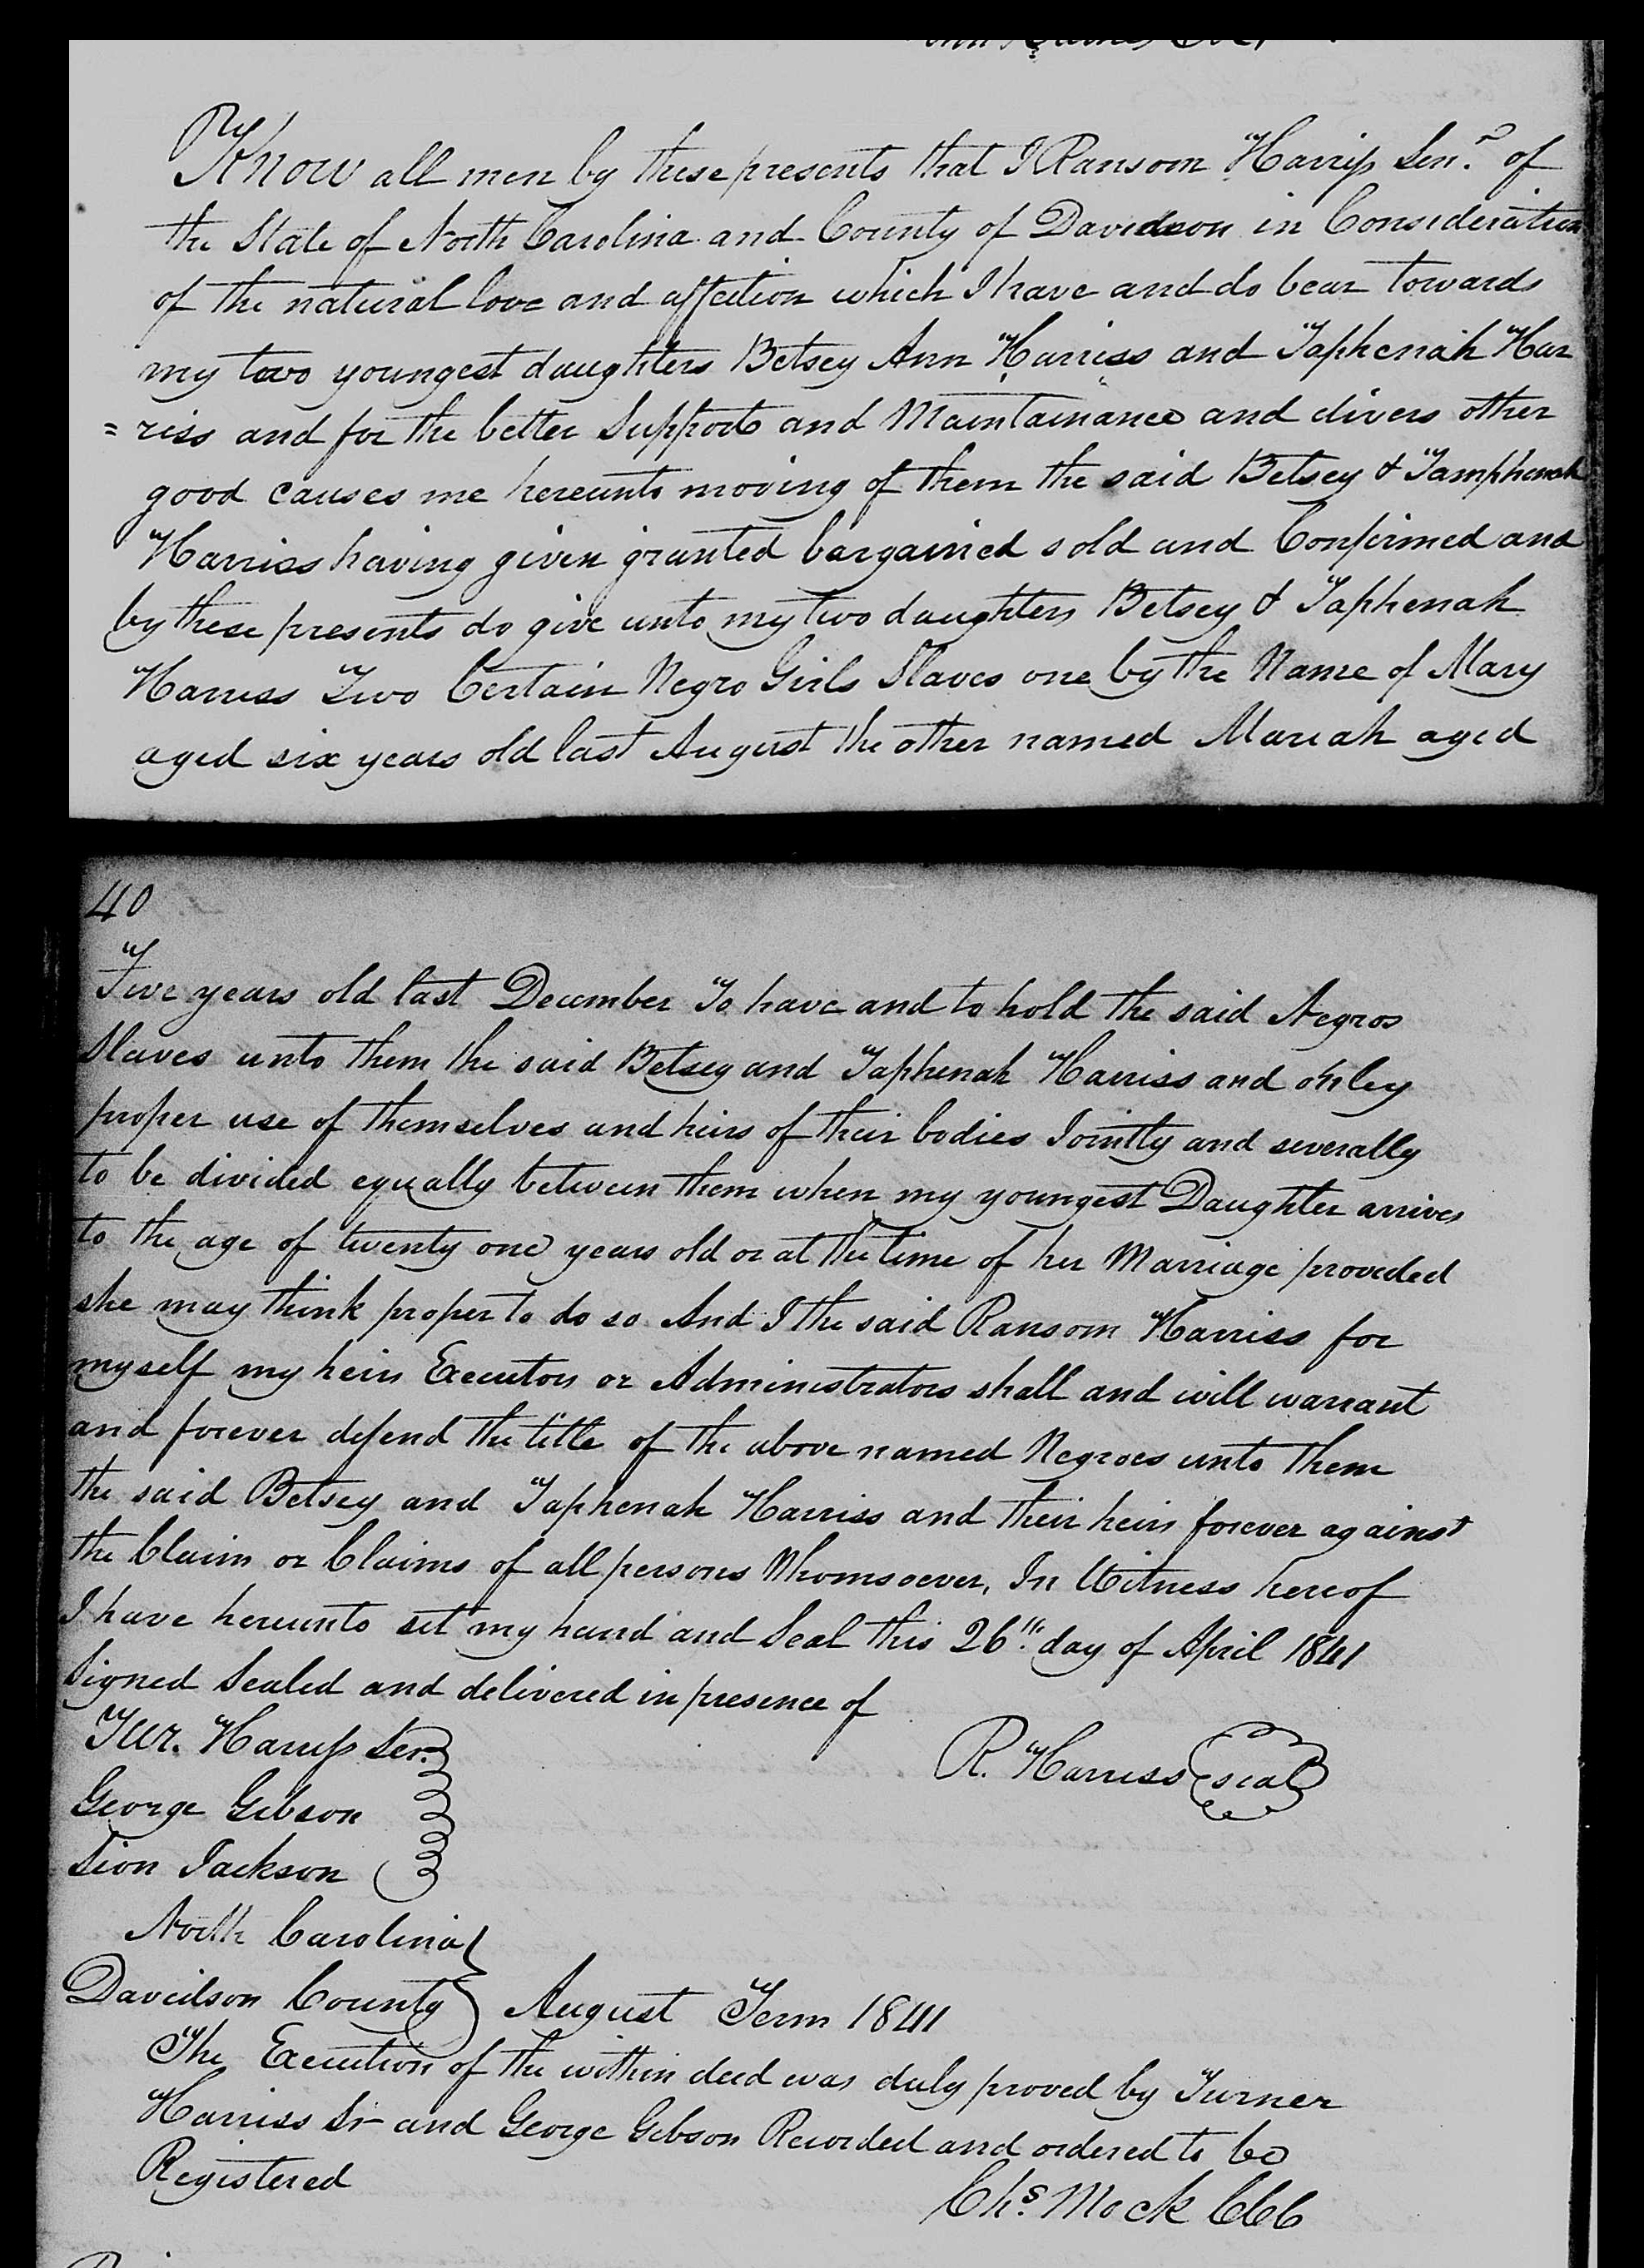 Know all men by these presents that I Ransom Harriss Senr. of
the State of North Carolina and County of Davidson in Consideration
of the natural love and affection which I have and do bear towards
my two youngest daughters Betsey Ann Harriss and Taphenah Har
= riss and for the better Support and Maintainance and divers other
good causes me hereunto moving of them the said Betsey & Tamphenah
Harriss having given granted bargained sold and Confirmed and
by these presents do give unto my two daughters Betsey & Taphenah
Harriss Two Certain Negro Girls Slaves one by the Name of Mary
aged six years old last August the other named Mariah aged
40
Five years old last December To have and to hold the said Negros
Slaves unto them the said Betsey and Taphenah Harriss and onley
proper use of themselves and heirs of their bodies Jointly and severally
to be divided equally between them when my youngest Daughter arrives
to the age of twenty one years old or at the time of her Marriage proveded
she may think proper to do so And I the said Ransom Harriss for
myself my heirs Executors or Administrators shall and will warrant
and forever defend the title of the above named Negroes unto them
the said Betsey and Taphenah Harriss and their heirs forever against
the Claim or Claims of all persons Whomsoever, In Witness hereof
I have hereunto set my hand and Seal this 26th day of April 1841
Signed Sealed and delivered in presence of
Tur. Harriss Ser.
R. Harriss seal
George Gibson
Sion Jackson
North Carolina
Davidson County } August Term 1841
The Execution of the within deed was duly proved by Turner
Harriss Sr and George Gibson Recorded and ordered to be
Registered
Chs. Mock CCC